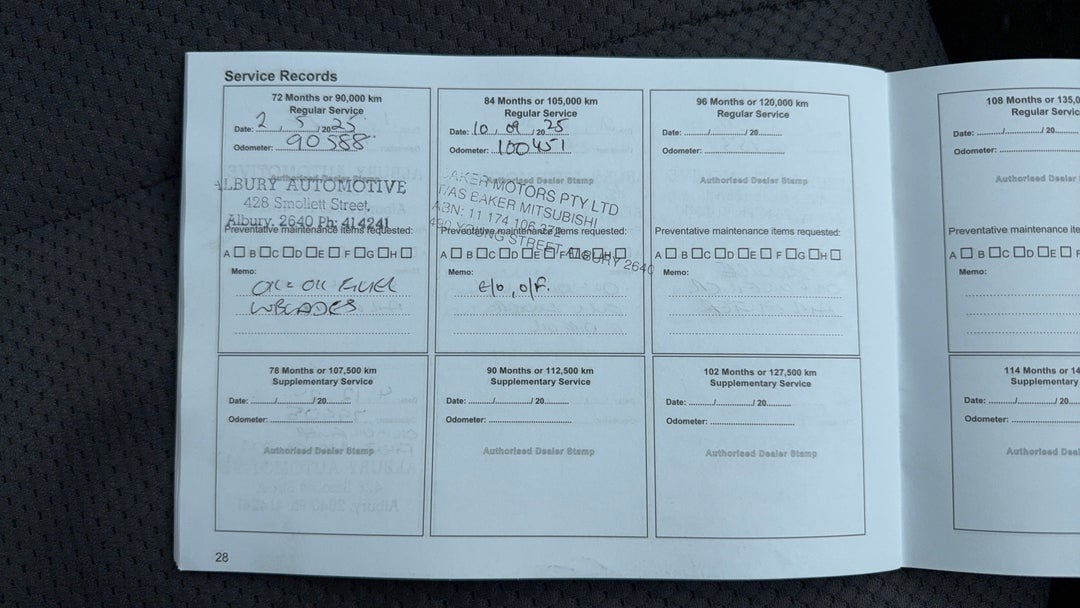 Service Records
72 Months or 90,000 km
Regular Service
Date: 2 / 5 / 20 25
Odometer: 90588
Authorised Dealer Stamp
ALBURY AUTOMOTIVE
428 Smollett Street,
Albury. 2640 Ph: 414241
Preventative maintenance items requested:
A B C D E F G H
Memo:
OIL & OIL FUEL
W BLADES
84 Months or 105,000 km
Regular Service
Date: 10 / 09 / 20 25
Odometer: 100451
Authorised Dealer Stamp
AKER MOTORS PTY LTD
T/AS BAKER MITSUBISHI
ABN: 11 174 106 372
YOUNG STREET ALBURY 2640
Preventative maintenance items requested:
A B C D E F G H
Memo:
E/O, O/F.
96 Months or 120,000 km
Regular Service
Date: ......./......./ 20
Odometer:
Authorised Dealer Stamp
Preventative maintenance items requested:
A B C D E F G H
Memo:
108 Months or 135,0
Regular Servic
Date: ......./......./ 20
Odometer:
Authorised Dealer Stam
Preventative maintenance ite
A B C D E F
Memo:
78 Months or 107,500 km
Supplementary Service
Date: ......./......./ 20
Odometer:
Authorised Dealer Stamp
90 Months or 112,500 km
Supplementary Service
Date: ......./......./ 20
Odometer:
Authorised Dealer Stamp
102 Months or 127,500 km
Supplementary Service
Date: ......./......./ 20
Odometer:
Authorised Dealer Stamp
114 Months or 14
Supplementary
Date: ......./......./ 20
Odometer:
Authorised Dea
28